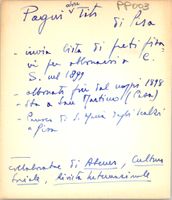 PP003
Pagni Tito
di Pisa
- invia lista di preti pisa
ni per abbonarsi a C.
S. nel 1899
- abbonato fin dal 1898
- sta a San Martino (Pisa)
- Parroco di S. degli Scalzi
a Pisa
collaboratore di Ateneo, Cultura
Sociale, Rivista Internazionale